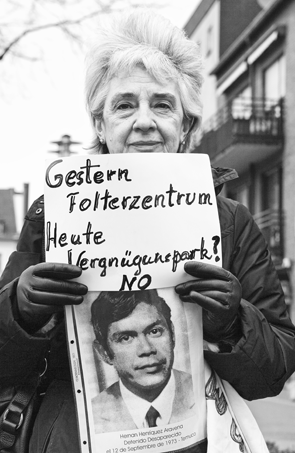 Gestern
Folterzentrum
Heute
Vergnügunspark?
NO
Hernan Henriquez Aravena
Detenido Desaparecido
el 12 de Septiembre de 1973 - Temuco